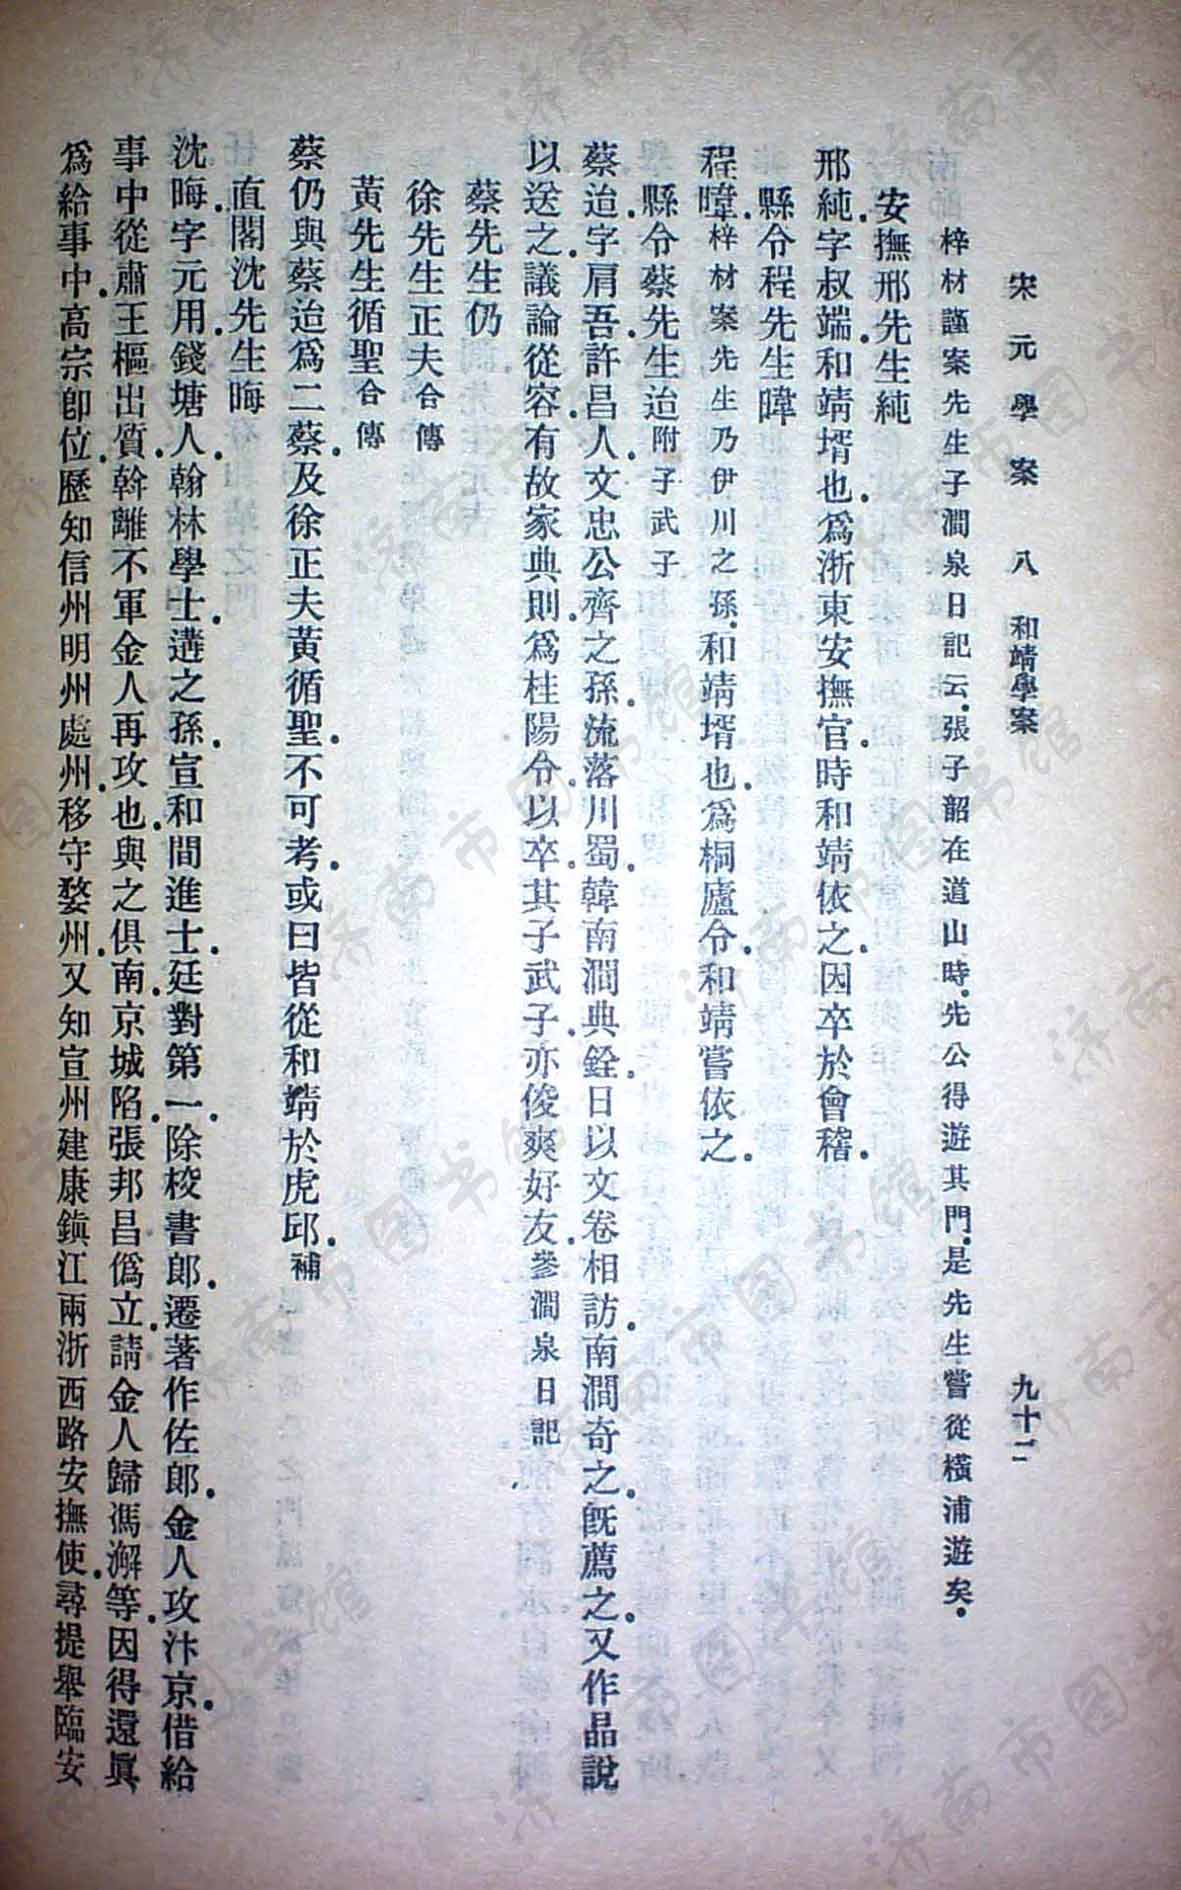 宋元學案 八 和靖學案 九十二
梓材謹案先生子澗泉日記云張子韶在道山時先公得遊其門是先生嘗從橫浦遊矣
安撫邢先生純
邢純字叔端和靖壻也爲浙東安撫官時和靖依之因卒於會稽
縣令程先生暐
程暐梓材案先生乃伊川之孫和靖壻也爲桐廬令和靖嘗依之
縣令蔡先生迨附子武子
蔡迨字肩吾許昌人文忠公齊之孫流落川蜀韓南澗典銓日以文卷相訪南澗奇之旣薦之又作品說
以送之議論從容有故家典則爲桂陽令以卒其子武子亦俊爽好友參澗泉日記
蔡先生仍
徐先生正夫合傳
黃先生循聖合傳
蔡仍與蔡迨爲二蔡及徐正夫黃循聖不可考或曰皆從和靖於虎邱補
直閣沈先生晦
沈晦字元用錢塘人翰林學士遘之孫宣和間進士廷對第一除校書郎遷著作佐郎金人攻汴京借給
事中從肅王樞出質斡離不軍金人再攻也與之俱南京城陷張邦昌僞立請金人歸馮澥等因得還眞
爲給事中高宗卽位歷知信州明州處州移守婺州又知宣州建康鎭江兩浙西路安撫使尋提舉臨安
濟南市图书馆